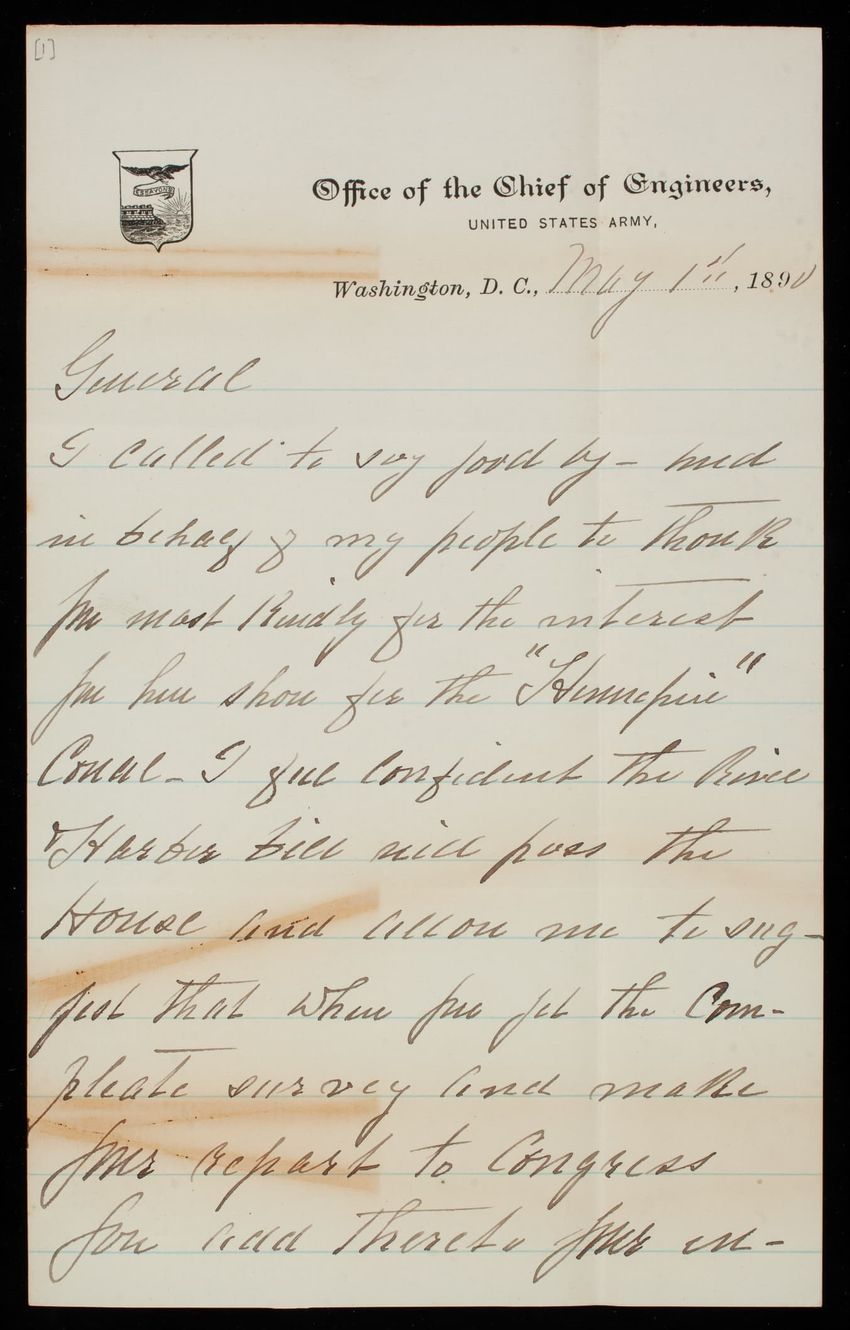 [1]
ESSAYONS
Office of the Chief of Engineers,
UNITED STATES ARMY,
Washington, D. C., May 1st, 1890
General
I called to say good by - and
in behalf of my people to thank
you most kindly for the interest
you have shown for the "Hennepin"
Canal - I feel confident the River
& Harbor bill will pass the
House and allow me to sug-
gest that when you get the Com-
pleate survey and make
your report to Congress
you add thereto your en-